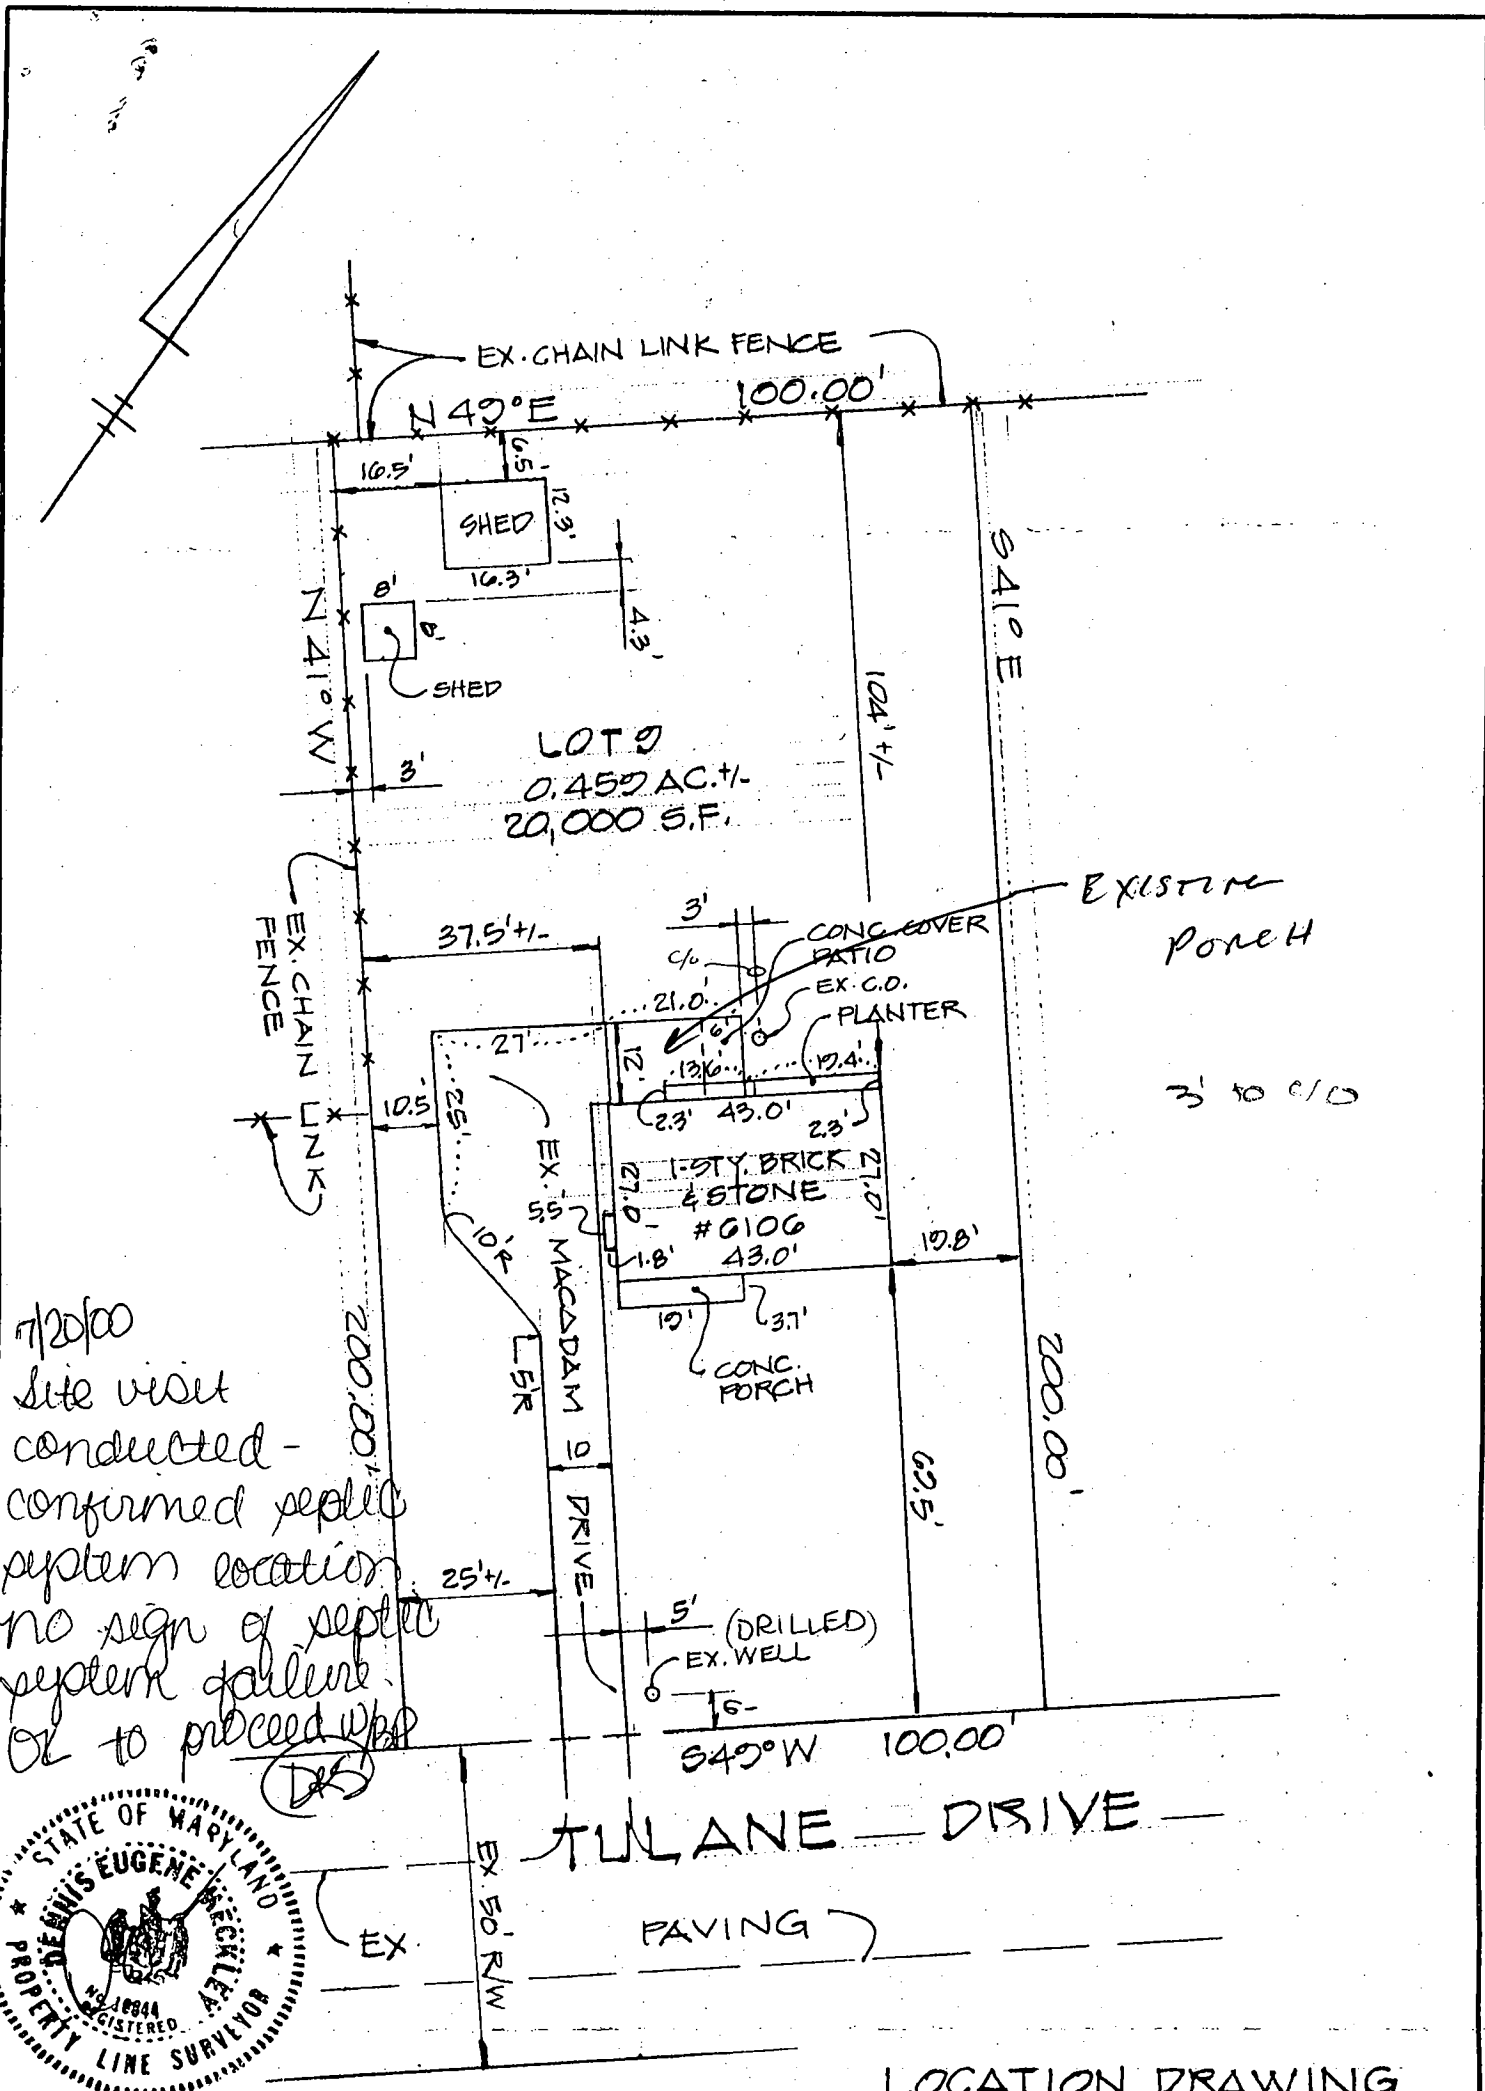 EX. CHAIN LINK FENCE
N 49° E
100.00'
16.5'
6.5'
SHED
12.3'
16.3'
8'
8'
4.3'
SHED
N 41° W
S 41° E
3'
LOT 9
0.459 AC.+/-
20,000 S.F.
104'+/-
EX. CHAIN LINK
FENCE
37.5'+/-
3'
C/O
CONC. COVER
PATIO
EX. C.O.
PLANTER
EXISTING
PORCH
3' to C/O
21.0'
27'
12'
6'
13.6'
19.4'
10.5'
25'
2.3'
43.0'
2.3'
1-STY. BRICK
& STONE
#6106
27.0'
27.0'
5.5'
1.8'
43.0'
19.8'
10'R
5'R
19'
3.7'
CONC.
PORCH
EX. MACADAM
10
DRIVE
200.00'
200.00'
62.5'
7/20/00
Site visit
conducted -
confirmed septic
system location.
no sign of septic
system failure.
OK to proceed w/BP
25'+/-
5'
(DRILLED)
EX. WELL
6'
S49°W
100.00'
TULANE DRIVE
EX. 50' R/W
EX.
PAVING
STATE OF MARYLAND
DENNIS EUGENE MECKLEY
No. 10844
REGISTERED
PROPERTY LINE SURVEYOR
LOCATION DRAWING